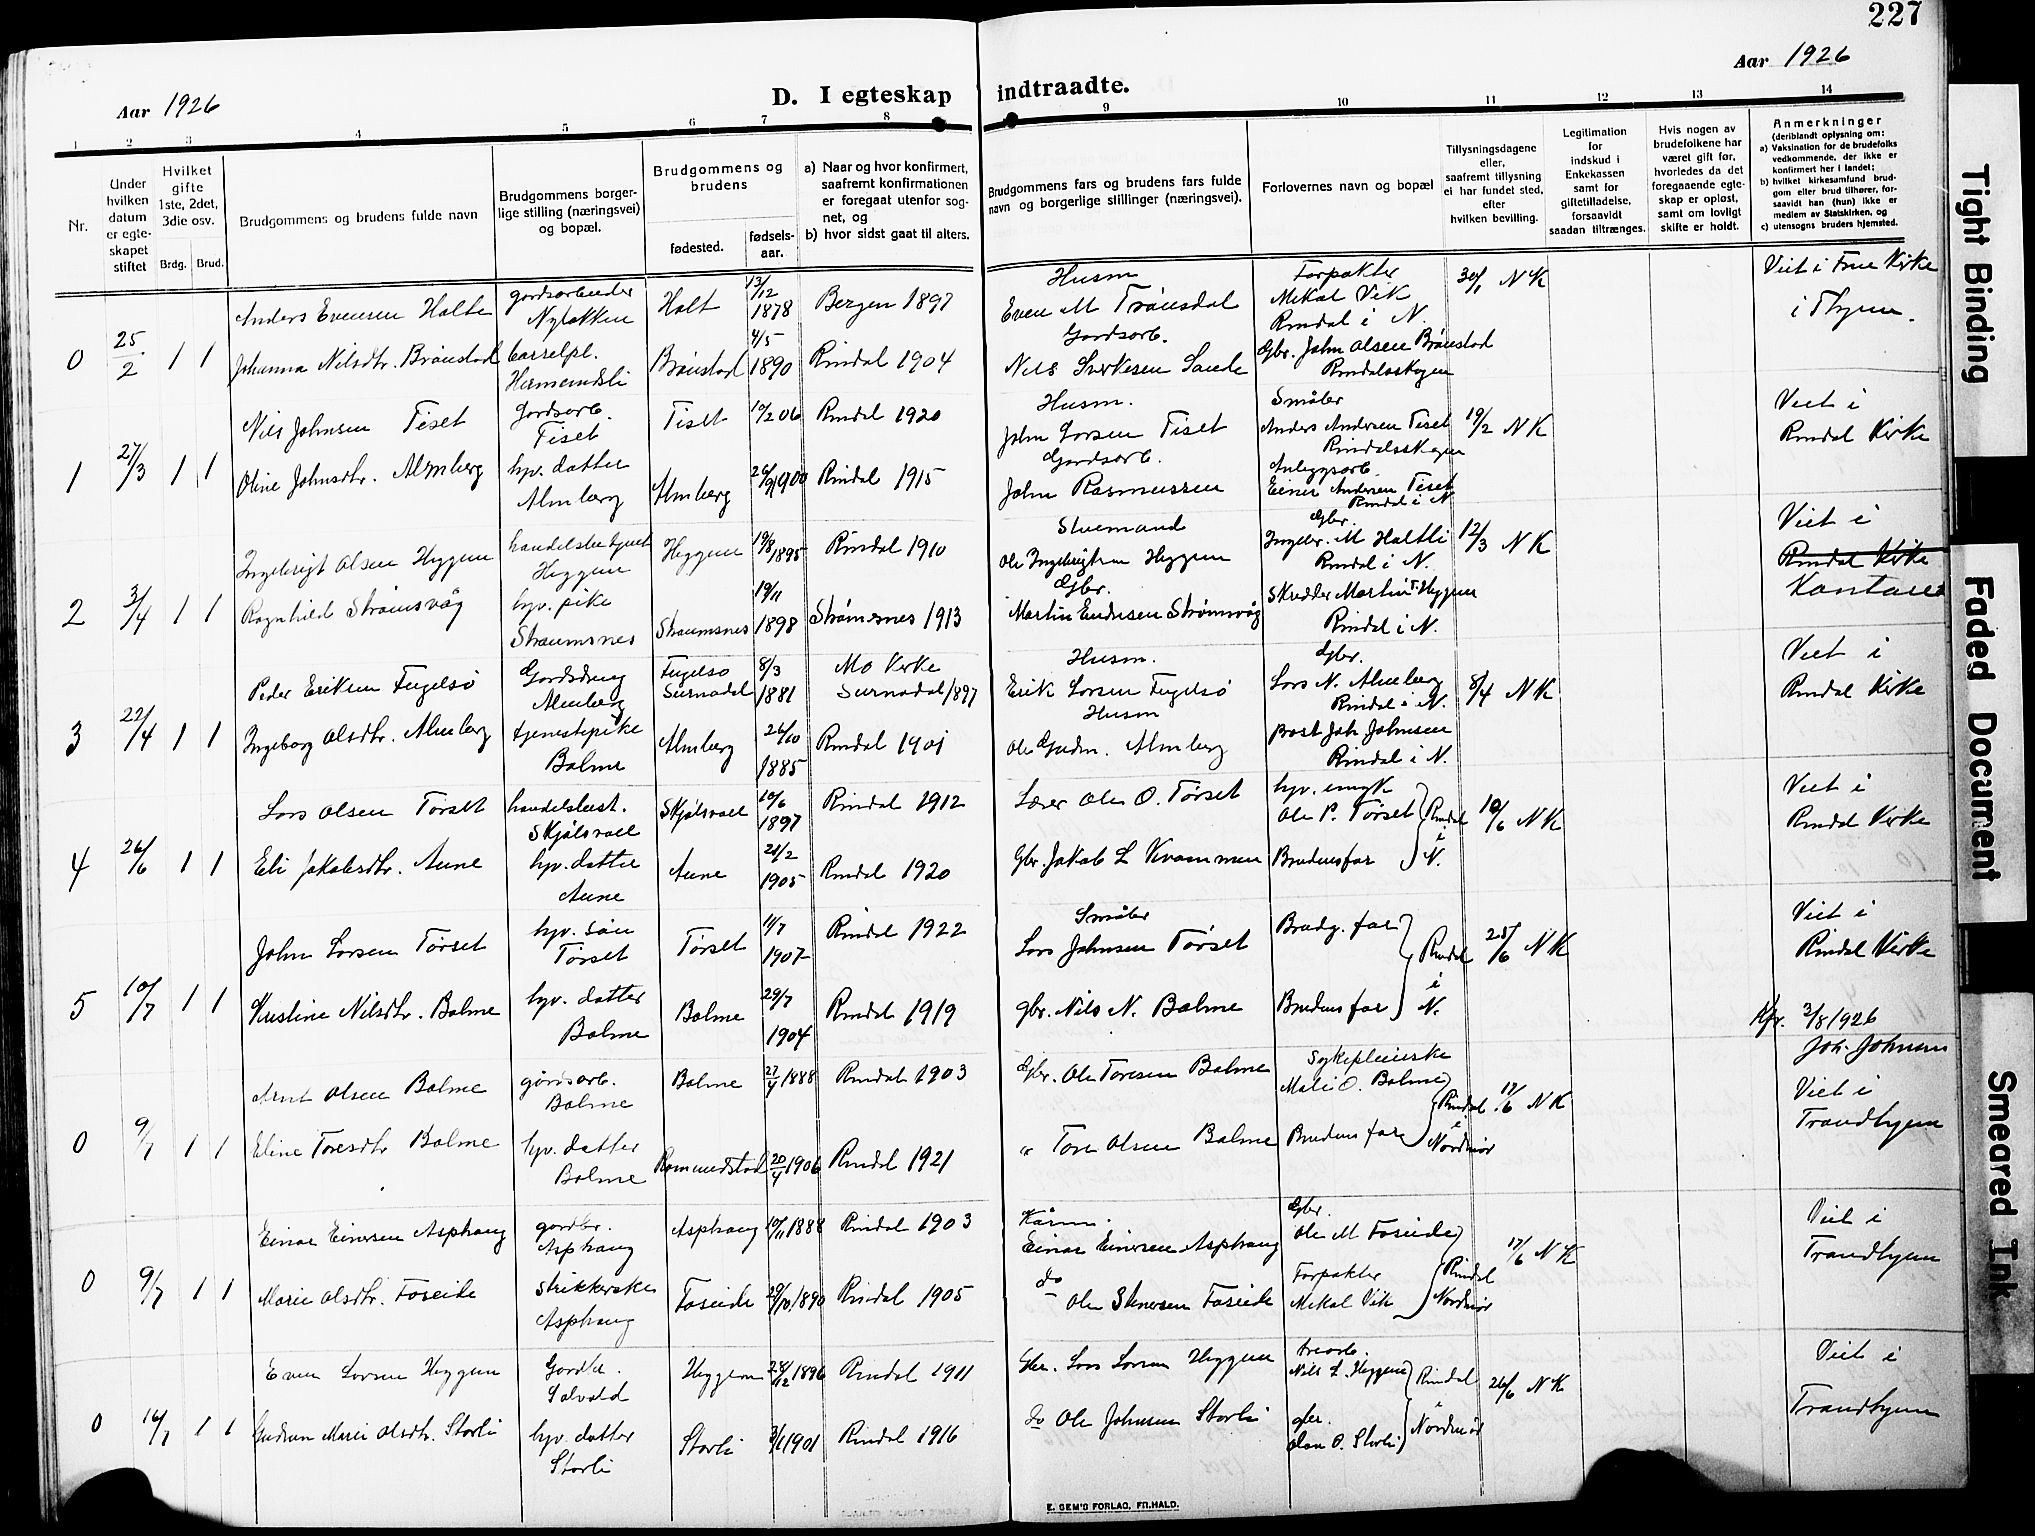 227
Aar 1926
D. I egteskap indtraadte.
Aar 1926
1 2 3 4 5 6 7 8 9 10 11 12 13 14
Nr.
Under hvilken datum er egteskapet stiftet
Hvilket gifte 1ste, 2det, 3die osv.
Brdg. Brud.
Brudgommens og brudens fulde navn
Brudgommens borgerlige stilling (næringsvei) og bopæl.
Brudgommens og brudens
fødested.
fødselsaar.
a) Naar og hvor konfirmert, saafremt konfirmationen er foregaat utenfor sognet, og
b) hvor sidst gaat til alters.
Brudgommens fars og brudens fars fulde navn og borgerlige stillinger (næringsvei).
Forlovernes navn og bopæl
Tillysningsdagene eller, saafremt tillysning ei har fundet sted, efter hvilken bevilling.
Legitimation for indskud i Enkekassen samt for giftetilladelse, forsaavidt saadan tiltrænges.
Hvis nogen av brudefolkene har været gift før, hvorledes da det foregaaende egteskap er opløst, samt om lovligt skifte er holdt.
Anmerkninger
(deriblandt oplysning om:
a) Vaksination for de brudefolks vedkommende, der ikke er konfirmert her i landet;
b) hvilket kirkesamfund brudgom eller brud tilhører, forsaavidt han (hun) ikke er medlem av Statskirken, og
c) utensogns bruders hjemsted.
0 25/2 1 1
Anders Evensen Halte
Halt 13/12 1878 Bergen 1897
Husm
Even M Trönsdal
Forpakter
Mikal Vik
Rindal i N.
30/1 N K
Viet i Frue Kirke
i Thjem.
Johanna Nilsdtr. Brönstad
Hermundsli
Brönstad 4/5 1890 Rindal 1904
Gardsarb.
Nils Sivertsen Sande
Gbr. John Olsen Brönstad
Rindalsskogen
1 27/3 1 1
Nils Johnsen Tiset
Gardsarb.
Tiset
Tiset 10/2 06 Rindal 1920
Husm.
John Larsen Tiset
Småbr
Anders Andersen Tiset
Rindalsskogen
19/2 N K
Viet i
Rindal Kirke
Oline Johnsdtr. Almberg
hjv. datter
Almberg
Almberg 1900 Rindal 1915
Gardsarb.
John Rasmussen
Anleggsarb.
Einar Andersen Tiset
Rindal i N
2 3/4 1 1
Ingebrigt Olsen Heggem
handelsbetjent
Heggem
Heggem 19/8 1895 Rindal 1910
Stuemand
Ole Ingebrigtsen Heggem
Gbr.
Ingebr. M Haltli
Rindal i N.
12/3 N K
Viet i
Rindal Kirke
Ragnhild Strömsvåg
hjv. pike
Straumsnes
Straumsnes 19/11 1898 Strömsnes 1913
Gbr.
Martin Endresen Strömsvåg
Skredder Martin T. Heggem
Rindal i N.
3 22/4 1 1
Peder Eriksen Fugelsö
Gardsdreng
Almberg
Fugelsö
Surnadal
8/3 1881
Mo Kirke
Surnadal 1897
Husm.
Erik Larsen Fugelsö
Gbr.
Lars N. Almberg
Rindal i N.
8/4 N K
Viet i
Rindal Kirke
Ingeborg Olsdtr. Almberg
tjenestepike
Bolme
Almberg 26/10 1885 Rindal 1901
Husm
Ole Gudm. Almberg
Joh Johnsen
Rindal i N.
4 26/6 1 1
Lars Olsen Törset
handelsbest.
Skjölsvoll
Skjölsvoll 10/6 1897 Rindal 1912
Lærer Ole O. Törset
hjv. ungk
Ole P. Törset
Rindal i N.
10/6 N K
Viet i
Rindal Kirke
Eli Jakobsdtr. Aune
hjv. datter
Aune
Aune 21/2 1905 Rindal 1920
Gbr. Jakob L Kvammen
Brudens far
5 10/7 1 1
John Larsen Törset
hjv. sön
Törset
Törset 11/7 1907 Rindal 1922
Småbr
Lars Johnsen Törset
Brudg. far
Rindal i N.
25/6 N K
Viet i
Rindal Kirke
Kristine Nilsdtr. Bolme
hjv. datter
Bolme
Bolme 29/7 1904 Rindal 1919
gbr. Nils N. Bolme
Brudens far
Kfr. 2/8 1926
Joh. Johnsen
0 9/7 1 1
Arnt Olsen Bolme
gårdsarb.
Bolme
Bolme 27/4 1888 Rindal 1903
Gbr. Ole Toresen Bolme
Sykepleierske
Mali O. Bolme
Rindal i Nordmör
17/6 N K
Viet i
Trondhjem
Eline Toresdtr Bolme
hjv. datter
Bolme
Romundstad 20/4 1906 Rindal 1921
" Tore Olsen Bolme
Brudens far
0 9/7 1 1
Einar Einarsen Asphaug
gardbr.
Asphaug
Asphaug 19/11 1888 Rindal 1903
Kårm.
Einar Einarsen Asphaug
Gbr.
Ole M Foseide
Rindal Nordmör
17/6 N K
Viet i
Trondhjem
Marie Olsdtr. Foseide
Strikkerske
Asphaug
Foseide 29/10 1890 Rindal 1905
do
Ole Stenersen Foseide
Forpakter
Mikal Vik
0 16/7 1 1
Even Larsen Heggem
Gardbr.
Solvold
Heggem 28/12 1896 Rindal 1911
Gbr. Lars Larsen Heggem
trearb.
Nils L. Heggem
Rindal i Nordmör
26/6 N K
Viet i
Trondhjem
Gudrun Marie Olsdtr. Storli
hjv. datter
Storli
Storli 3/1 1901 Rindal 1916
do Ole Johnsen Storli
gbr.
Olan O. Storli
E. SEM'S FORLAG, FR.HALD.
Tight Binding
Faded Document
Smeared Ink